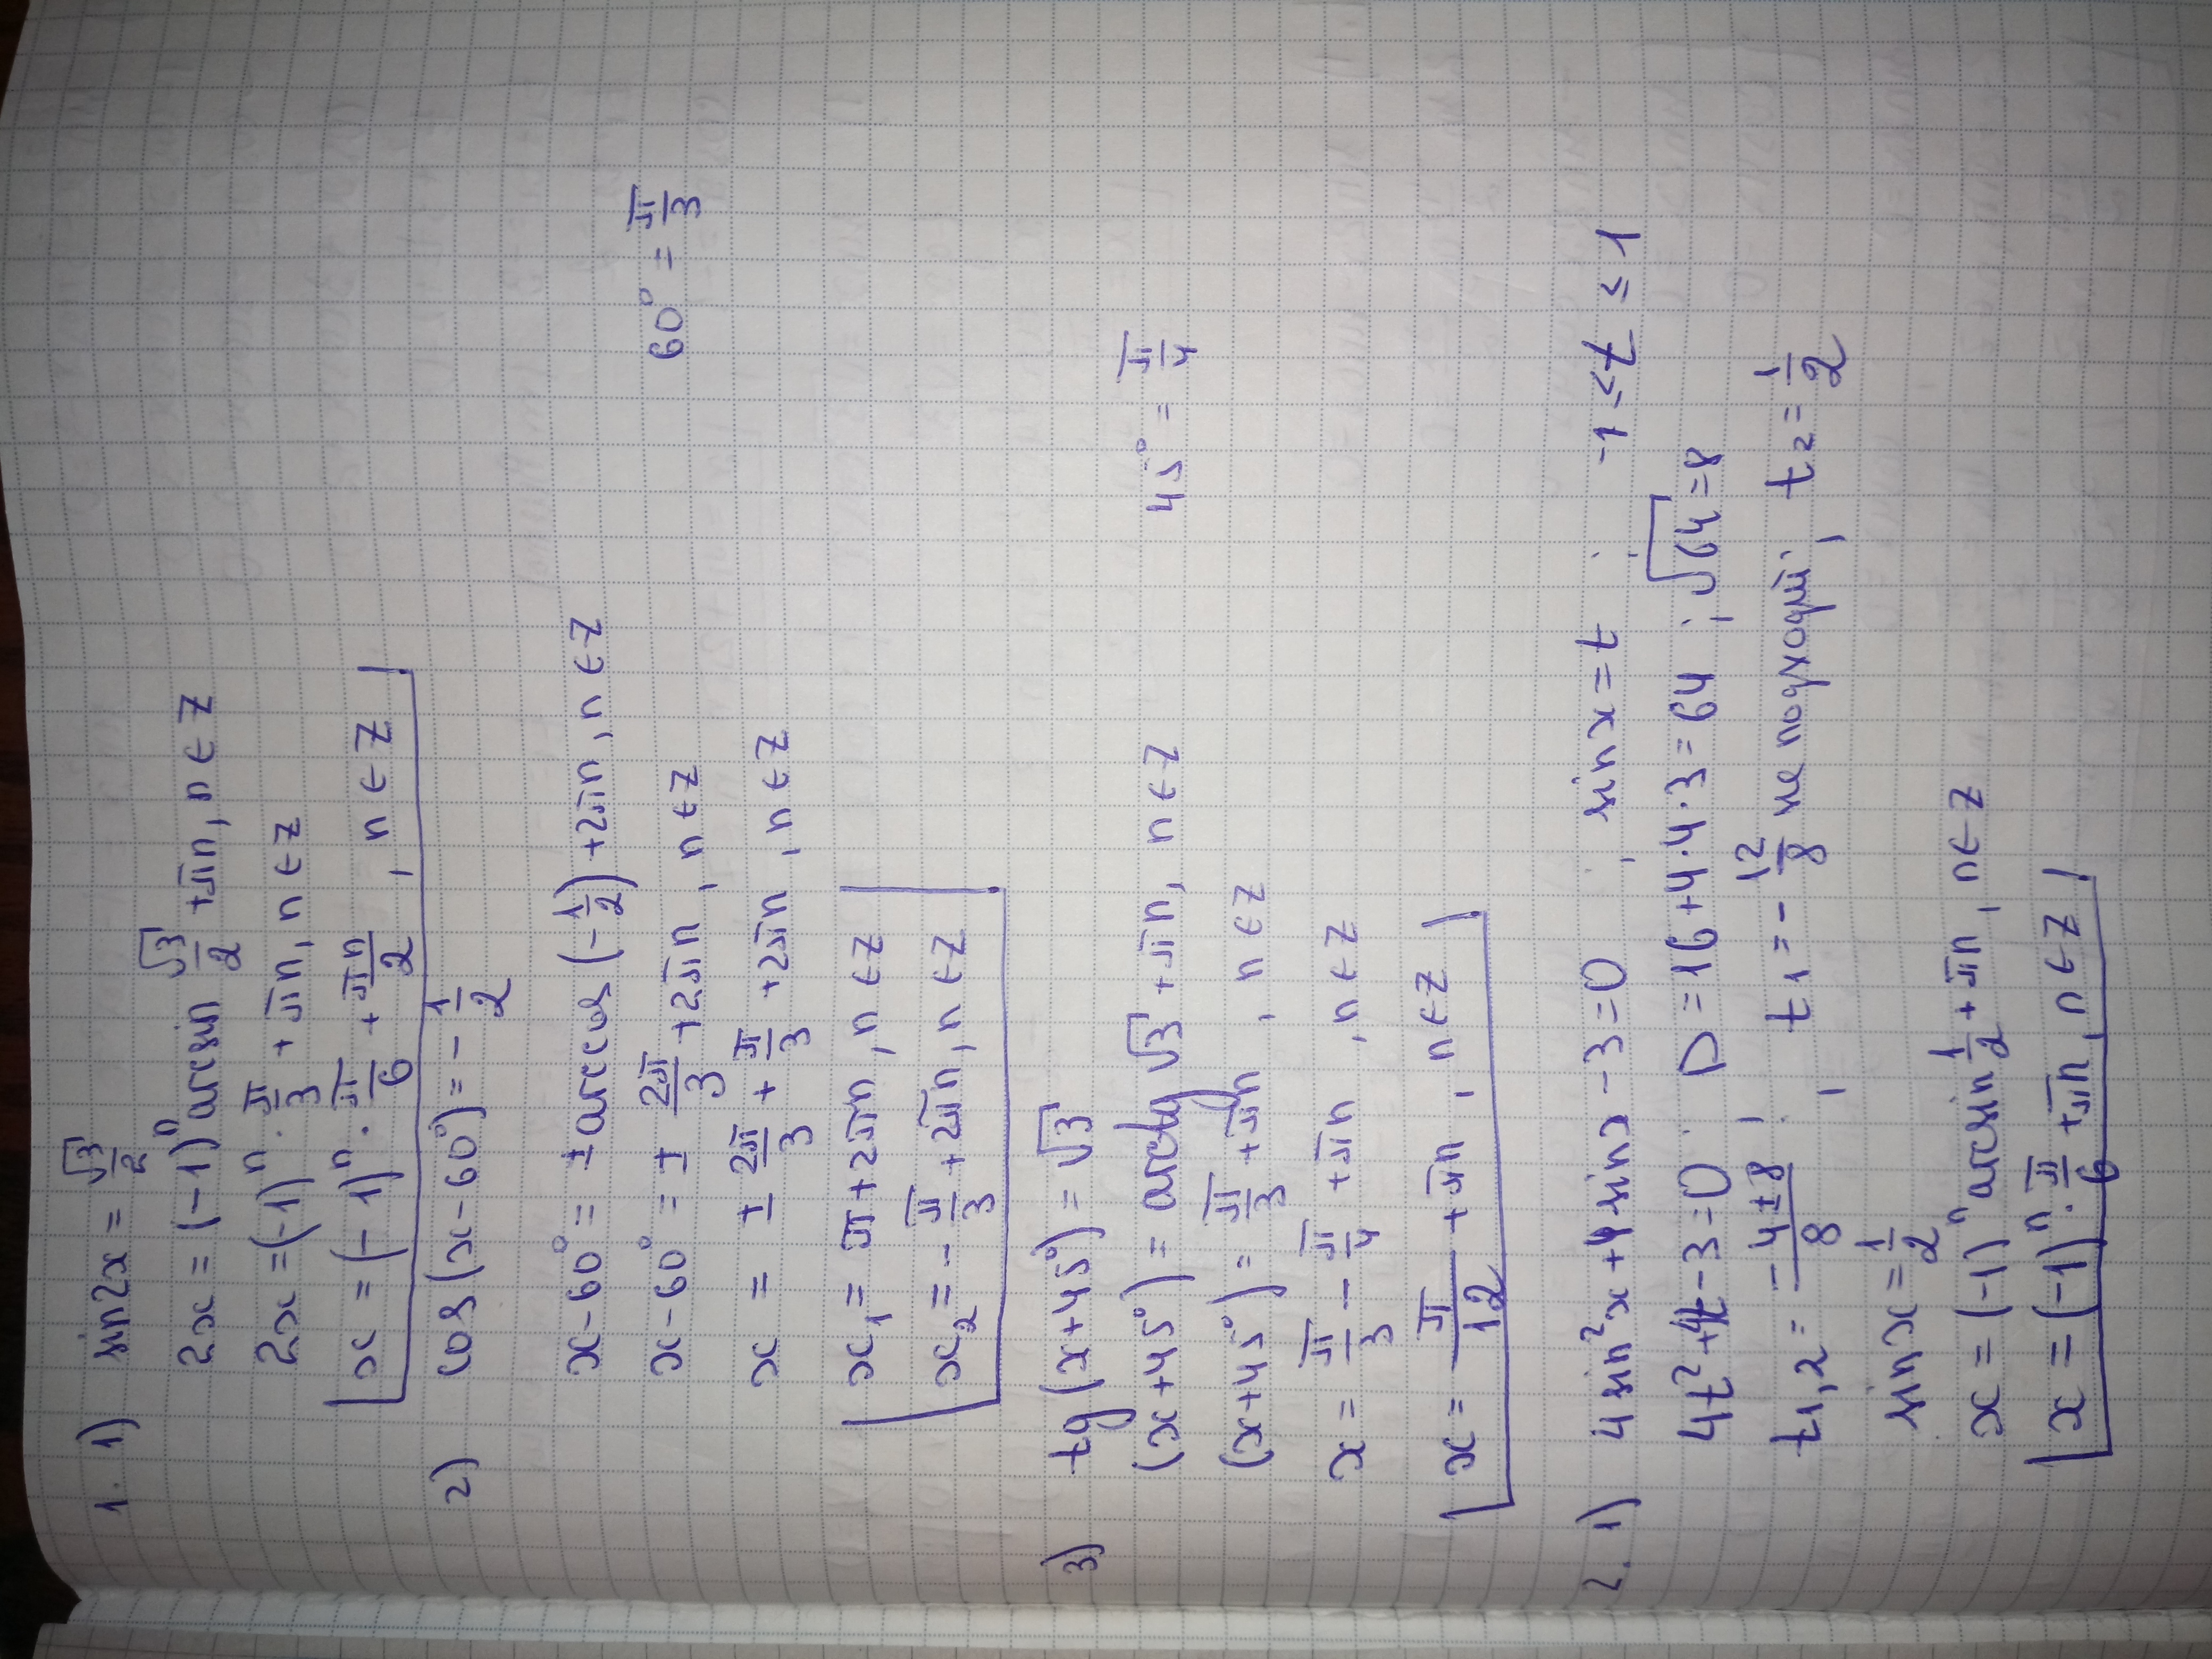 1. 1) sin2x = √3/2
2x = (-1)ⁿ arcsin √3/2 + πn, n ∈ Z
2x = (-1)ⁿ · π/3 + πn, n ∈ Z
x = (-1)ⁿ · π/6 + πn/2, n ∈ Z
2) cos(x-60°) = -1/2
x-60° = ± arccos(-1/2) + 2πn, n ∈ Z
x-60° = ± 2π/3 + 2πn, n ∈ Z 60° = π/3
x = ± 2π/3 + π/3 + 2πn, n ∈ Z
x₁ = π + 2πn, n ∈ Z
x₂ = -π/3 + 2πn, n ∈ Z
3) tg(x+45°) = √3
(x+45°) = arctg √3 + πn, n ∈ Z 45° = π/4
(x+45°) = π/3 + πn, n ∈ Z
x = π/3 - π/4 + πn, n ∈ Z
x = π/12 + πn, n ∈ Z
2. 1) 4 sin²x + 4 sinx - 3 = 0; sin x = t; -1 ≤ t ≤ 1
4t² + 4t - 3 = 0; D = 16 + 4·4·3 = 64; √64 = 8
t₁,₂ = -4±8/8, t₁ = -12/8 не подходит, t₂ = 1/2
sin x = 1/2
x = (-1)ⁿ arcsin 1/2 + πn, n ∈ Z
x = (-1)ⁿ · π/6 + πn, n ∈ Z